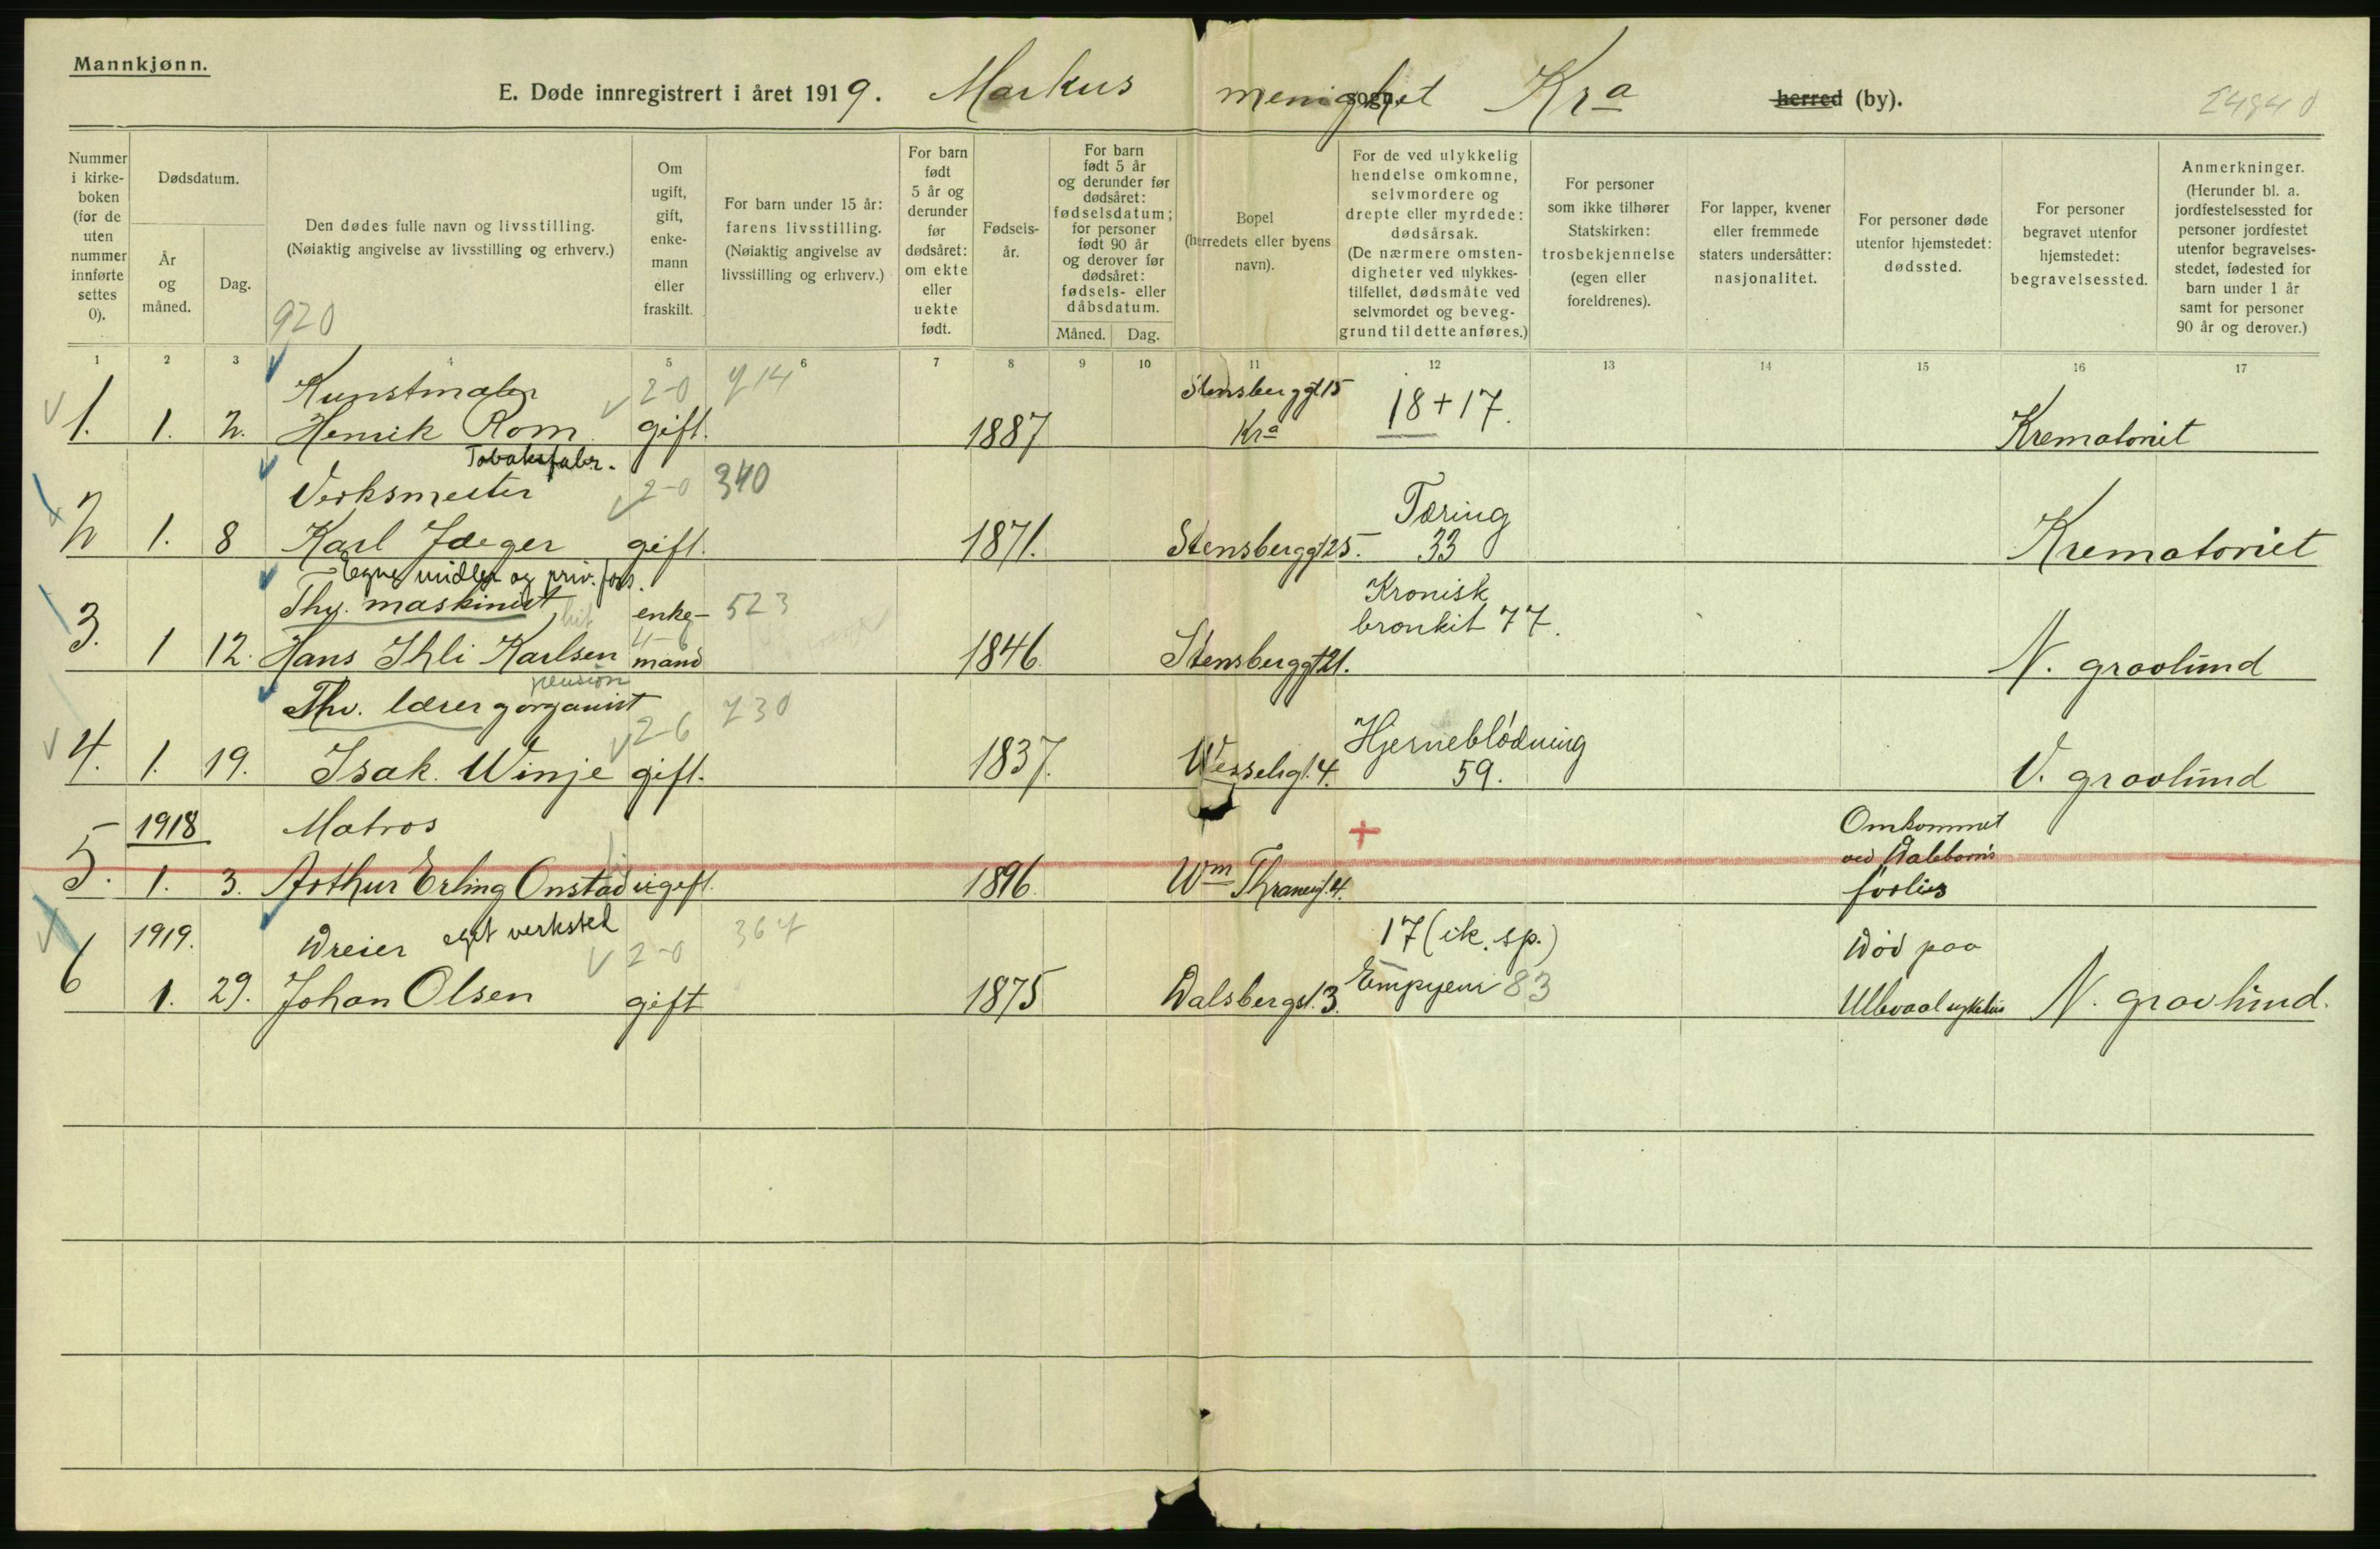 Mannkjønn.
E. Døde innregistrert i året 1919. Markus menighet sogn. Kra herred (by).
Nummer i kirke-boken (for de uten nummer innførte settes 0).
Dødsdatum.
År og måned.
Dag.
Den dødes fulle navn og livsstilling.
(Nøiaktig angivelse av livsstilling og erhverv.)
920
Om ugift, gift, enke-mann eller fraskilt.
For barn under 15 år: farens livsstilling.
(Nøiaktig angivelse av livsstilling og erhverv.)
For barn født 5 år og derunder før dødsåret: om ekte eller uekte født.
Fødsels-år.
For barn født 5 år og derunder før dødsåret: fødselsdatum; for personer født 90 år og derover før dødsåret: fødsels- eller dåbsdatum.
Måned. Dag.
Bopel (herredets eller byens navn).
For de ved ulykkelig hendelse omkomne, selvmordere og drepte eller myrdede: dødsårsak.
(De nærmere omsten-digheter ved ulykkes-tilfellet, dødsmåte ved selvmordet og beveg-grund til dette anføres.)
For personer som ikke tilhører Statskirken: trosbekjennelse (egen eller foreldrenes).
For lapper, kvener eller fremmede staters undersåtter: nasjonalitet.
For personer døde utenfor hjemstedet: dødssted.
For personer begravet utenfor hjemstedet: begravelsessted.
Anmerkninger.
(Herunder bl. a. jordfestelsessted for personer jordfestet utenfor begravelses-stedet, fødested for barn under 1 år samt for personer 90 år og derover.)
1 2 3 4 5 6 7 8 9 10 11 12 13 14 15 16 17
Kunstmaler 2-0 714 Stensberggt 15 18+17.
1. 1. 2. Henrik Rom gift. 1887 Kra Krematoriet
Tobaksfabr.
Verksmester 2-0 340 Tæring
2 1. 8 Karl Jæger gift. 1871. Stensberggt 25. 33 Krematoriet
Egne midler og priv. fors.
Thv. maskinist enke- 523 Kronisk bronkit 77.
3. 1 12. Hans Ihli Karlsen mand 1846. Stensberggt 21. N. gravlund
pension
Thv. lærer og organist 2-6 730 Hjerneblödning
4. 1. 19. Isak Winje gift. 1837. Wesselsgt. 4. 59. V. gravlund
1918 Matros + Omkommet ved
5. 1. 3. Arthur Erling Onstad ugift. 1896. Wm Thranesgt. 4. forlis
1919. Dreier eget verksted 2-0 367 17 (ik. sp.) Død paa
6 1. 29. Johan Olsen gift 1875 Dalsbergst. 3. Empyem 83 Ullevaal sykehus N. gravlund.